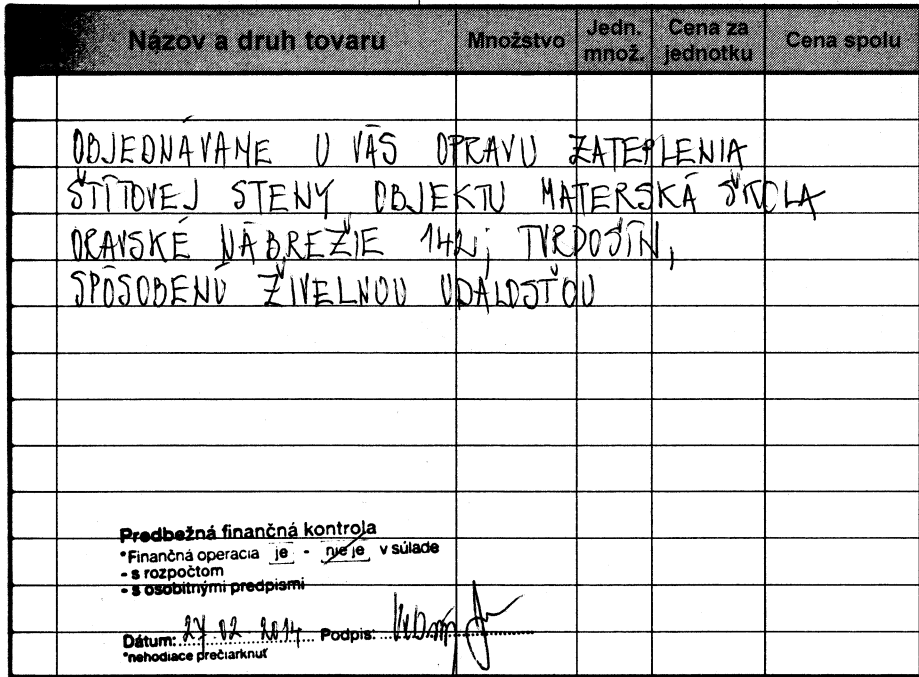 Názov a druh tovaru Množstvo Jedn. množ. Cena za jednotku Cena spolu
OBJEDNÁVAME U VÁS OPRAVU ZATEPLENIA
ŠTÍTOVEJ STENY OBJEKTU MATERSKÁ ŠKOLA
ORAVSKÉ NÁBREŽIE 142, TVRDOŠÍN,
SPÔSOBENÚ ŽIVELNOU UDALOSŤOU
Predbežná finančná kontrola
*Finančná operacia je - nie je v súlade
- s rozpočtom
- s osobitnými predpismi
Dátum: 27 02 2014 Podpis:
*nehodiace prečiarknuť